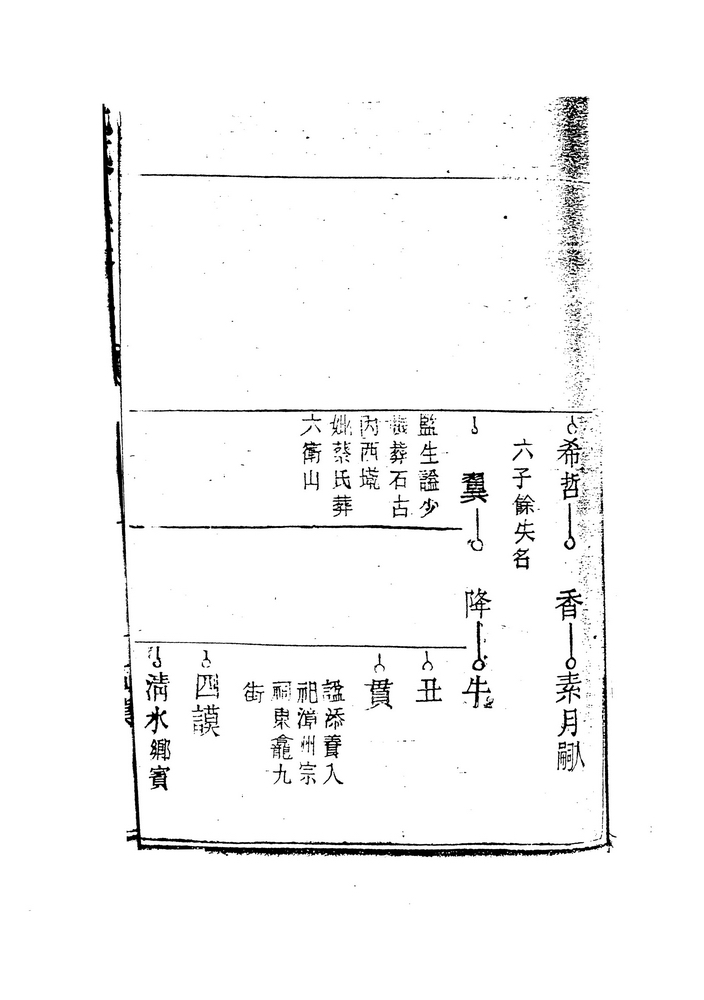 希哲
六子餘失名
香
素月嗣
翼
監生謚少
葬石古
内西塆
妣蔡氏葬
六衛山
降
牛
丑
貫
謚添養入
祀漳州宗
祠東龕九
街
四謨
清水鄉賓